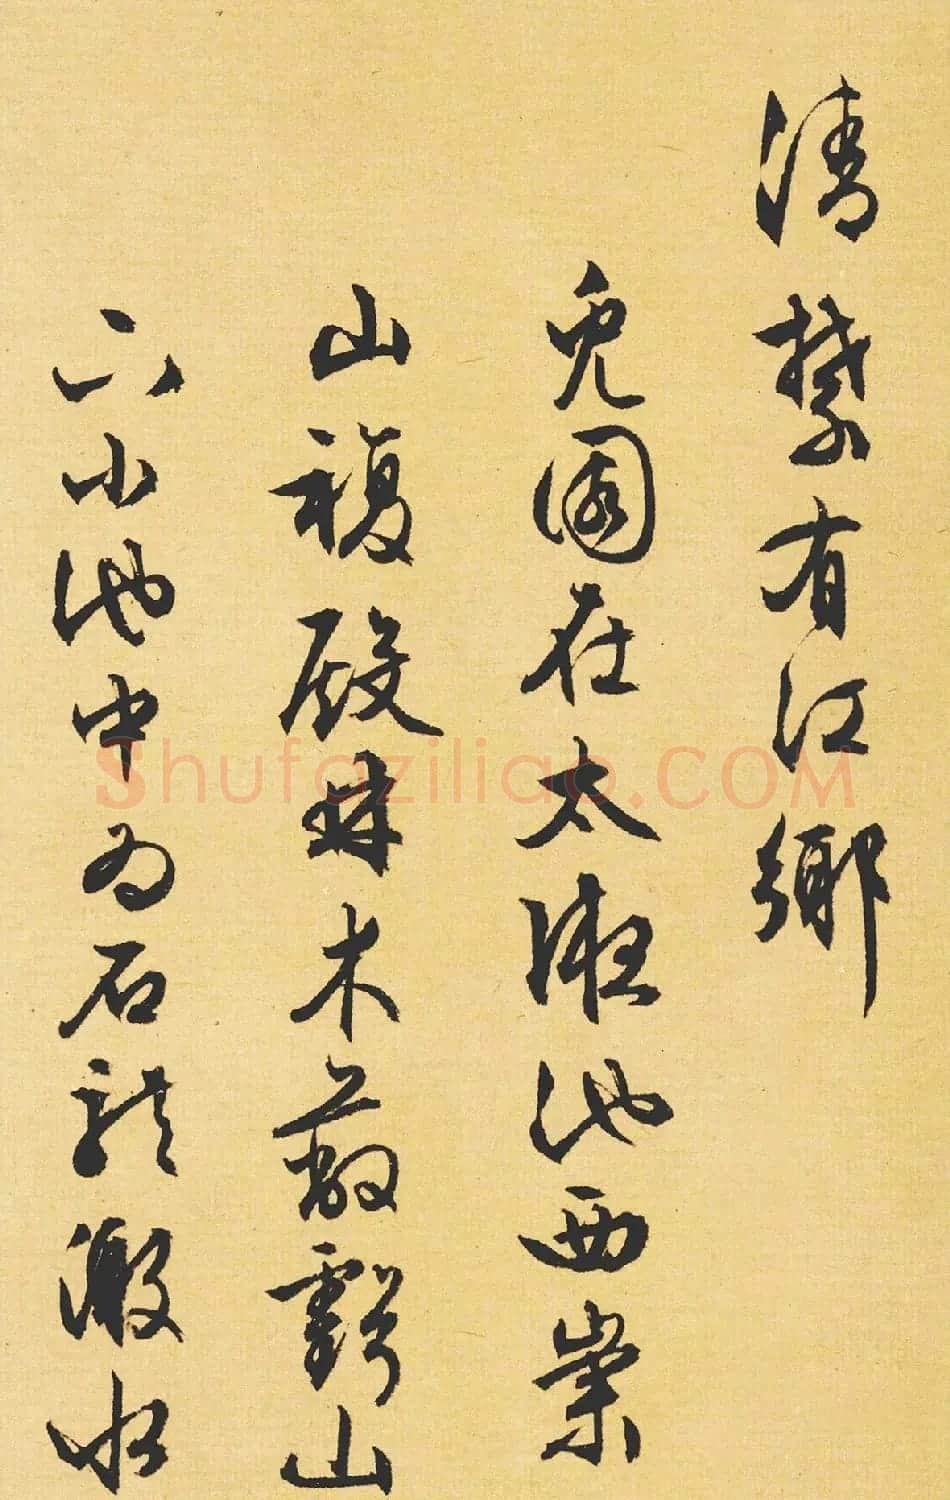 清禁有江鄉
兔園在太液池西崇
山複殿林木蔽虧山
下小池中為石龍激水
Shufaziliao.COM